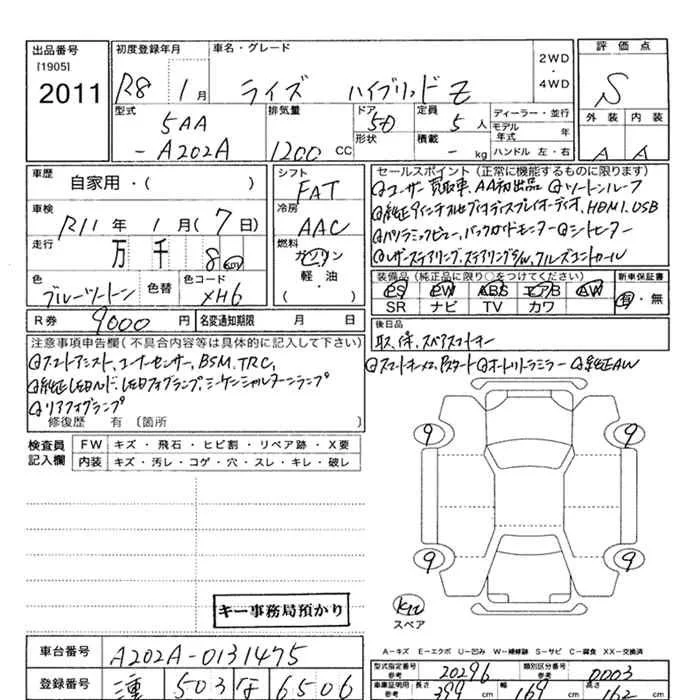 出品番号
[1905]
2011
初度登録年月
R8 1月
車名・グレード
ライズ ハイブリッド Z
2WD
・
4WD
評価点
S
外装 内装
A A
型式
5AA
-A202A
排気量
1200 CC
ドア
5D
形状
定員
5人
積載
- kg
ディーラー・並行
モデル年式 年
ハンドル 左・右
車歴
自家用・( )
車検
R11年 1月(7日)
走行
万 千 8 km
色
ブルーツートン
色替
色コード
XH6
シフト
FAT
冷房
AAC
燃料
ガソリン
軽・油
( )
セールスポイント(正常に機能するものに限ります)
◎ユーザー買取車、AA初出品 ◎ツートンルーフ
◎純正9インチナビディスプレイオーディオ、HDMI、USB
◎パノラミックビュー、バックガイドモニター ◎シートヒーター
◎レザーステアリング、ステアリングS/W、クルーズコントロール
装備品(純正品に限り○をつけてください)
PS PW ABS エアB AW
SR ナビ TV カワ
新車保証書
有・無
R券 9000円
名変通知期限 月 日
後日品
取、保、スペアスマートキー
◎スマートキー×2、Pスタート ◎オートリトラミラー ◎純正AW
注意事項申告欄(不具合内容等は具体的に記入して下さい)
◎スマートアシスト、コーナーセンサー、BSM、TRC、
◎純正LEDヘッド、LEDフォグランプ、シーケンシャルターンランプ
◎リアフォグランプ
修復歴 有 〔箇所 〕
検査員
記入欄
FW キズ・飛石・ヒビ割・リペア跡・X要
内装 キズ・汚レ・コゲ・穴・スレ・キレ・破レ
9 9
9 9
スペア
キー事務局預かり
A−キズ E−エクボ U−凹み W−補修跡 S−サビ C−腐食 XX−交換済
車台番号
A202A-0131475
登録番号
503 な 6506
型式指定番号
参考
20296
類別区分番号
参考
0003
車庫証明用
参考
長さ 399 cm
幅 169 cm
高さ cm